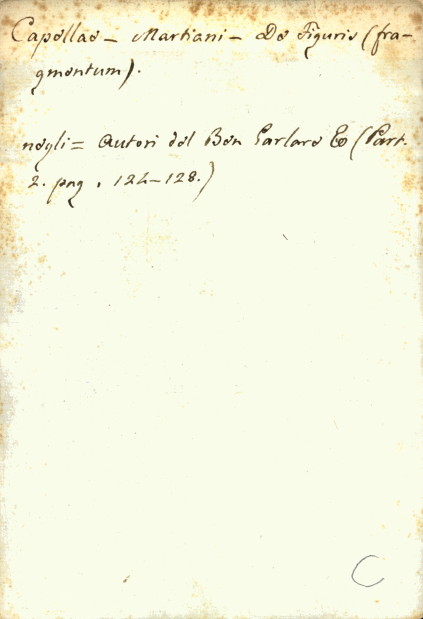 Capellae - Martiani - De Figuris (fra-
gmentum).
negli = Autori del Ben Parlare &c (Part.
2. pag. 124-128.)
C